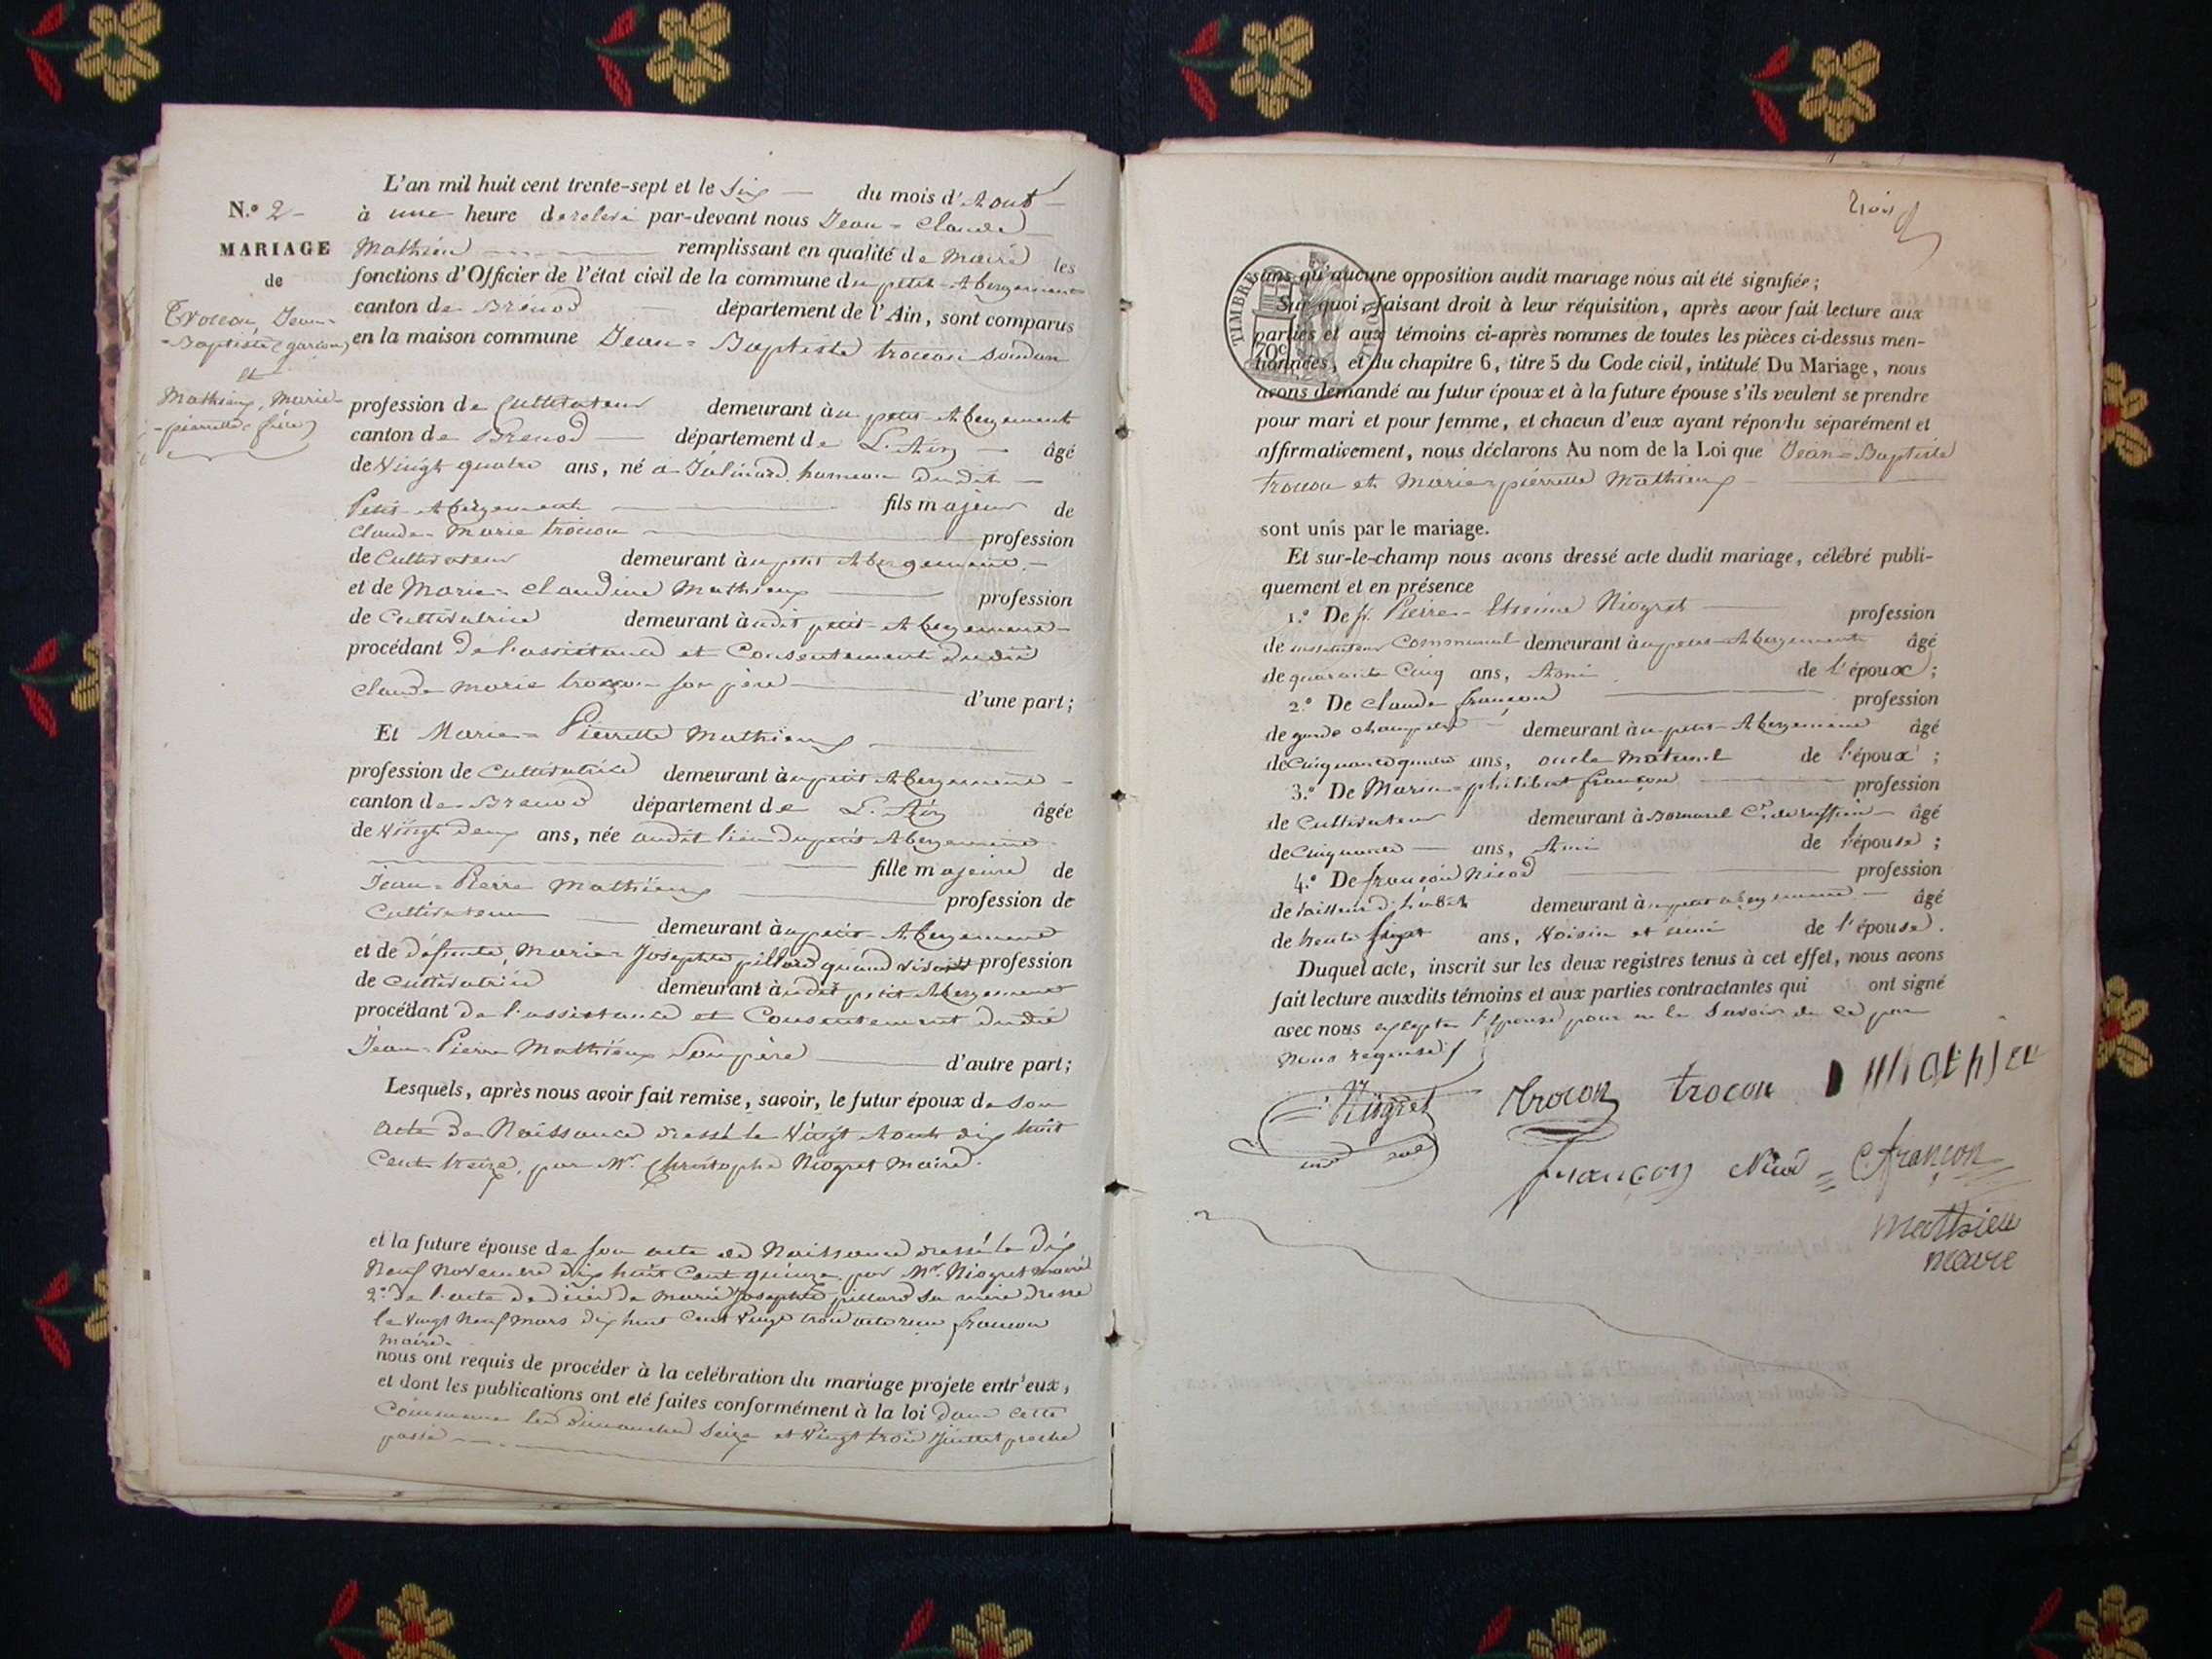 N.o 2
MARIAGE
de
Trocon, Jean-
-Baptiste (garçon)
et
Mathieux, Marie-
-pierrette (fille)
L'an mil huit cent trente-sept et le Six du mois d'Aout
à une heure de relevé par-devant nous Jean-Claude
Mathieu remplissant en qualité de Maire les
fonctions d'Officier de l'état civil de la commune du petit-Abergement
canton de Brénod département de l'Ain, sont comparus
en la maison commune Jean-Baptiste trocon
profession de Cultivateur demeurant au petit-Abergement
canton de Brenod département de L'Ain âgé
de Vingt quatre ans, né à hameau dudit
Petit-Abergement fils majeur de
Claude-Marie trocon profession
de Cultivateur demeurant au petit Abergement
et de Marie-Claudine Mathieux profession
de Cultivatrice demeurant audit petit-Abergement
procédant de l'assistance et Consentement dudit
Claude Marie trocon son père d'une part;
Et Marie-Pierrette Mathieux
profession de Cultivatrice demeurant au petit Abergement
canton de Brenod département de L'Ain âgée
de Vingt deux ans, née audit lieu du petit Abergement
fille majeure de
Jean-Pierre Mathieux profession de
Cultivateur demeurant au petit-Abergement
et de défunte, Marie-Josephte pillard quand vivait profession
de Cultivatrice demeurant audit petit-Abergement
procédant de l'assistance et Consentement dudit
Jean-Pierre Mathieux Son père d'autre part;
Lesquels, après nous avoir fait remise, savoir, le futur époux de son
acte de Naissance dressé le Vingt Aout dix huit
Cent treize, par Mr. Christophe Niogret Maire.
et la future épouse de son acte de Naissance dressé le dix
Neuf Novembre dix huit Cent quinze par Mr. Niogret maire
2.o de l'acte de décès de Marie Josephte pillard sa mère dressé
le Vingt Neuf Mars dix huit Cent Vingt trois françon
Maire
nous ont requis de procéder à la celébration du mariage projeté entr'eux,
et dont les publications ont été faites conformément à la loi dans cette
Commune les Dimanches Seize et Vingt trois Juillet proche
passé
TIMBRE
70c
sans qu'aucune opposition audit mariage nous ait été signifiée;
Sur quoi, faisant droit à leur réquisition, après avoir fait lecture aux
parties et aux témoins ci-après nommes de toutes les pièces ci-dessus men-
tionnées, et du chapitre 6, titre 5 du Code civil, intitulé Du Mariage, nous
avons demandé au futur époux et à la future épouse s'ils veulent se prendre
pour mari et pour femme, et chacun d'eux ayant répondu séparément et
affirmativement, nous déclarons Au nom de la Loi que Jean-Baptiste
trocon et Marie-pierrette Mathieux
sont unis par le mariage.
Et sur-le-champ nous avons dressé acte dudit mariage, célébré publi-
quement et en présence
1.o De Pierre-Etienne Niogret profession
de instituteur Communal demeurant au petit-Abergement âgé
de quarante Cinq ans, Ami de l'époux;
2.o De Claude françon profession
de garde champetre demeurant au petit-Abergement âgé
de Cinquante quatre ans, oncle Maternel de l'époux;
3.o De Marin-philibert françon profession
de Cultivateur demeurant à Cne de ruffieu âgé
de Cinquante ans, Ami de l'épouse;
4.o De françois Nicod profession
de tailleur d'habits demeurant au petit abergement âgé
de trente ans, Voisin et ami de l'épouse.
Duquel acte, inscrit sur les deux registres tenus à cet effet, nous avons
fait lecture auxdits témoins et aux parties contractantes qui ont signé
avec nous excepté l'épouse pour ne le Savoir de ce par
Nous requise
Niogret trocon trocon mathieu
françon Nicod françon
mathieu
maire